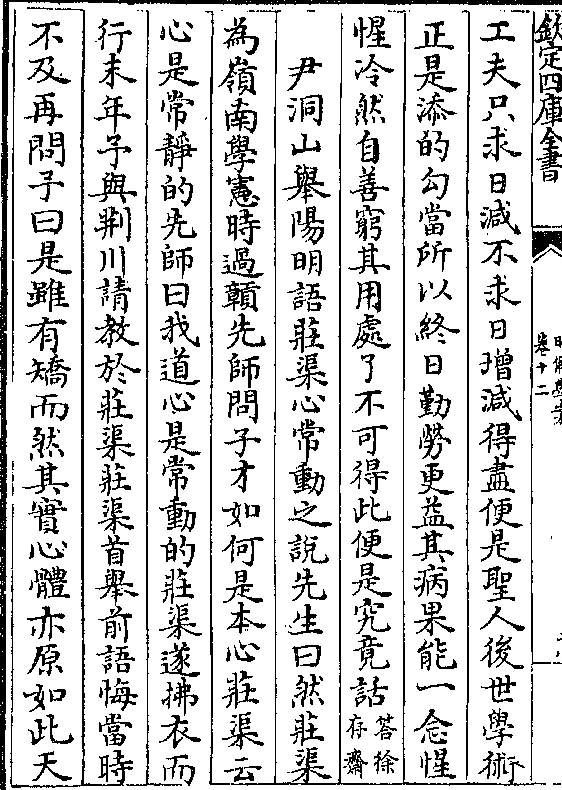 欽定四庫全書
卷十二
工夫只求日減不求日增減得盡便是聖人後世學術
正是添的勾當所以終日勤勞更益其病果能一念惺
惺冷然自善窮其用處了不可得此便是究竟話答徐存齋
尹洞山舉陽明語莊渠心常動之說先生曰然莊渠
為嶺南學憲時過贛先師問子才如何是本心莊渠云
心是常靜的先師曰我道心是常動的莊渠遂拂衣而
行末年予與荆川請教於莊渠莊渠首舉前語悔當時
不及再問予曰是雖有矯而然其實心體亦原如此天